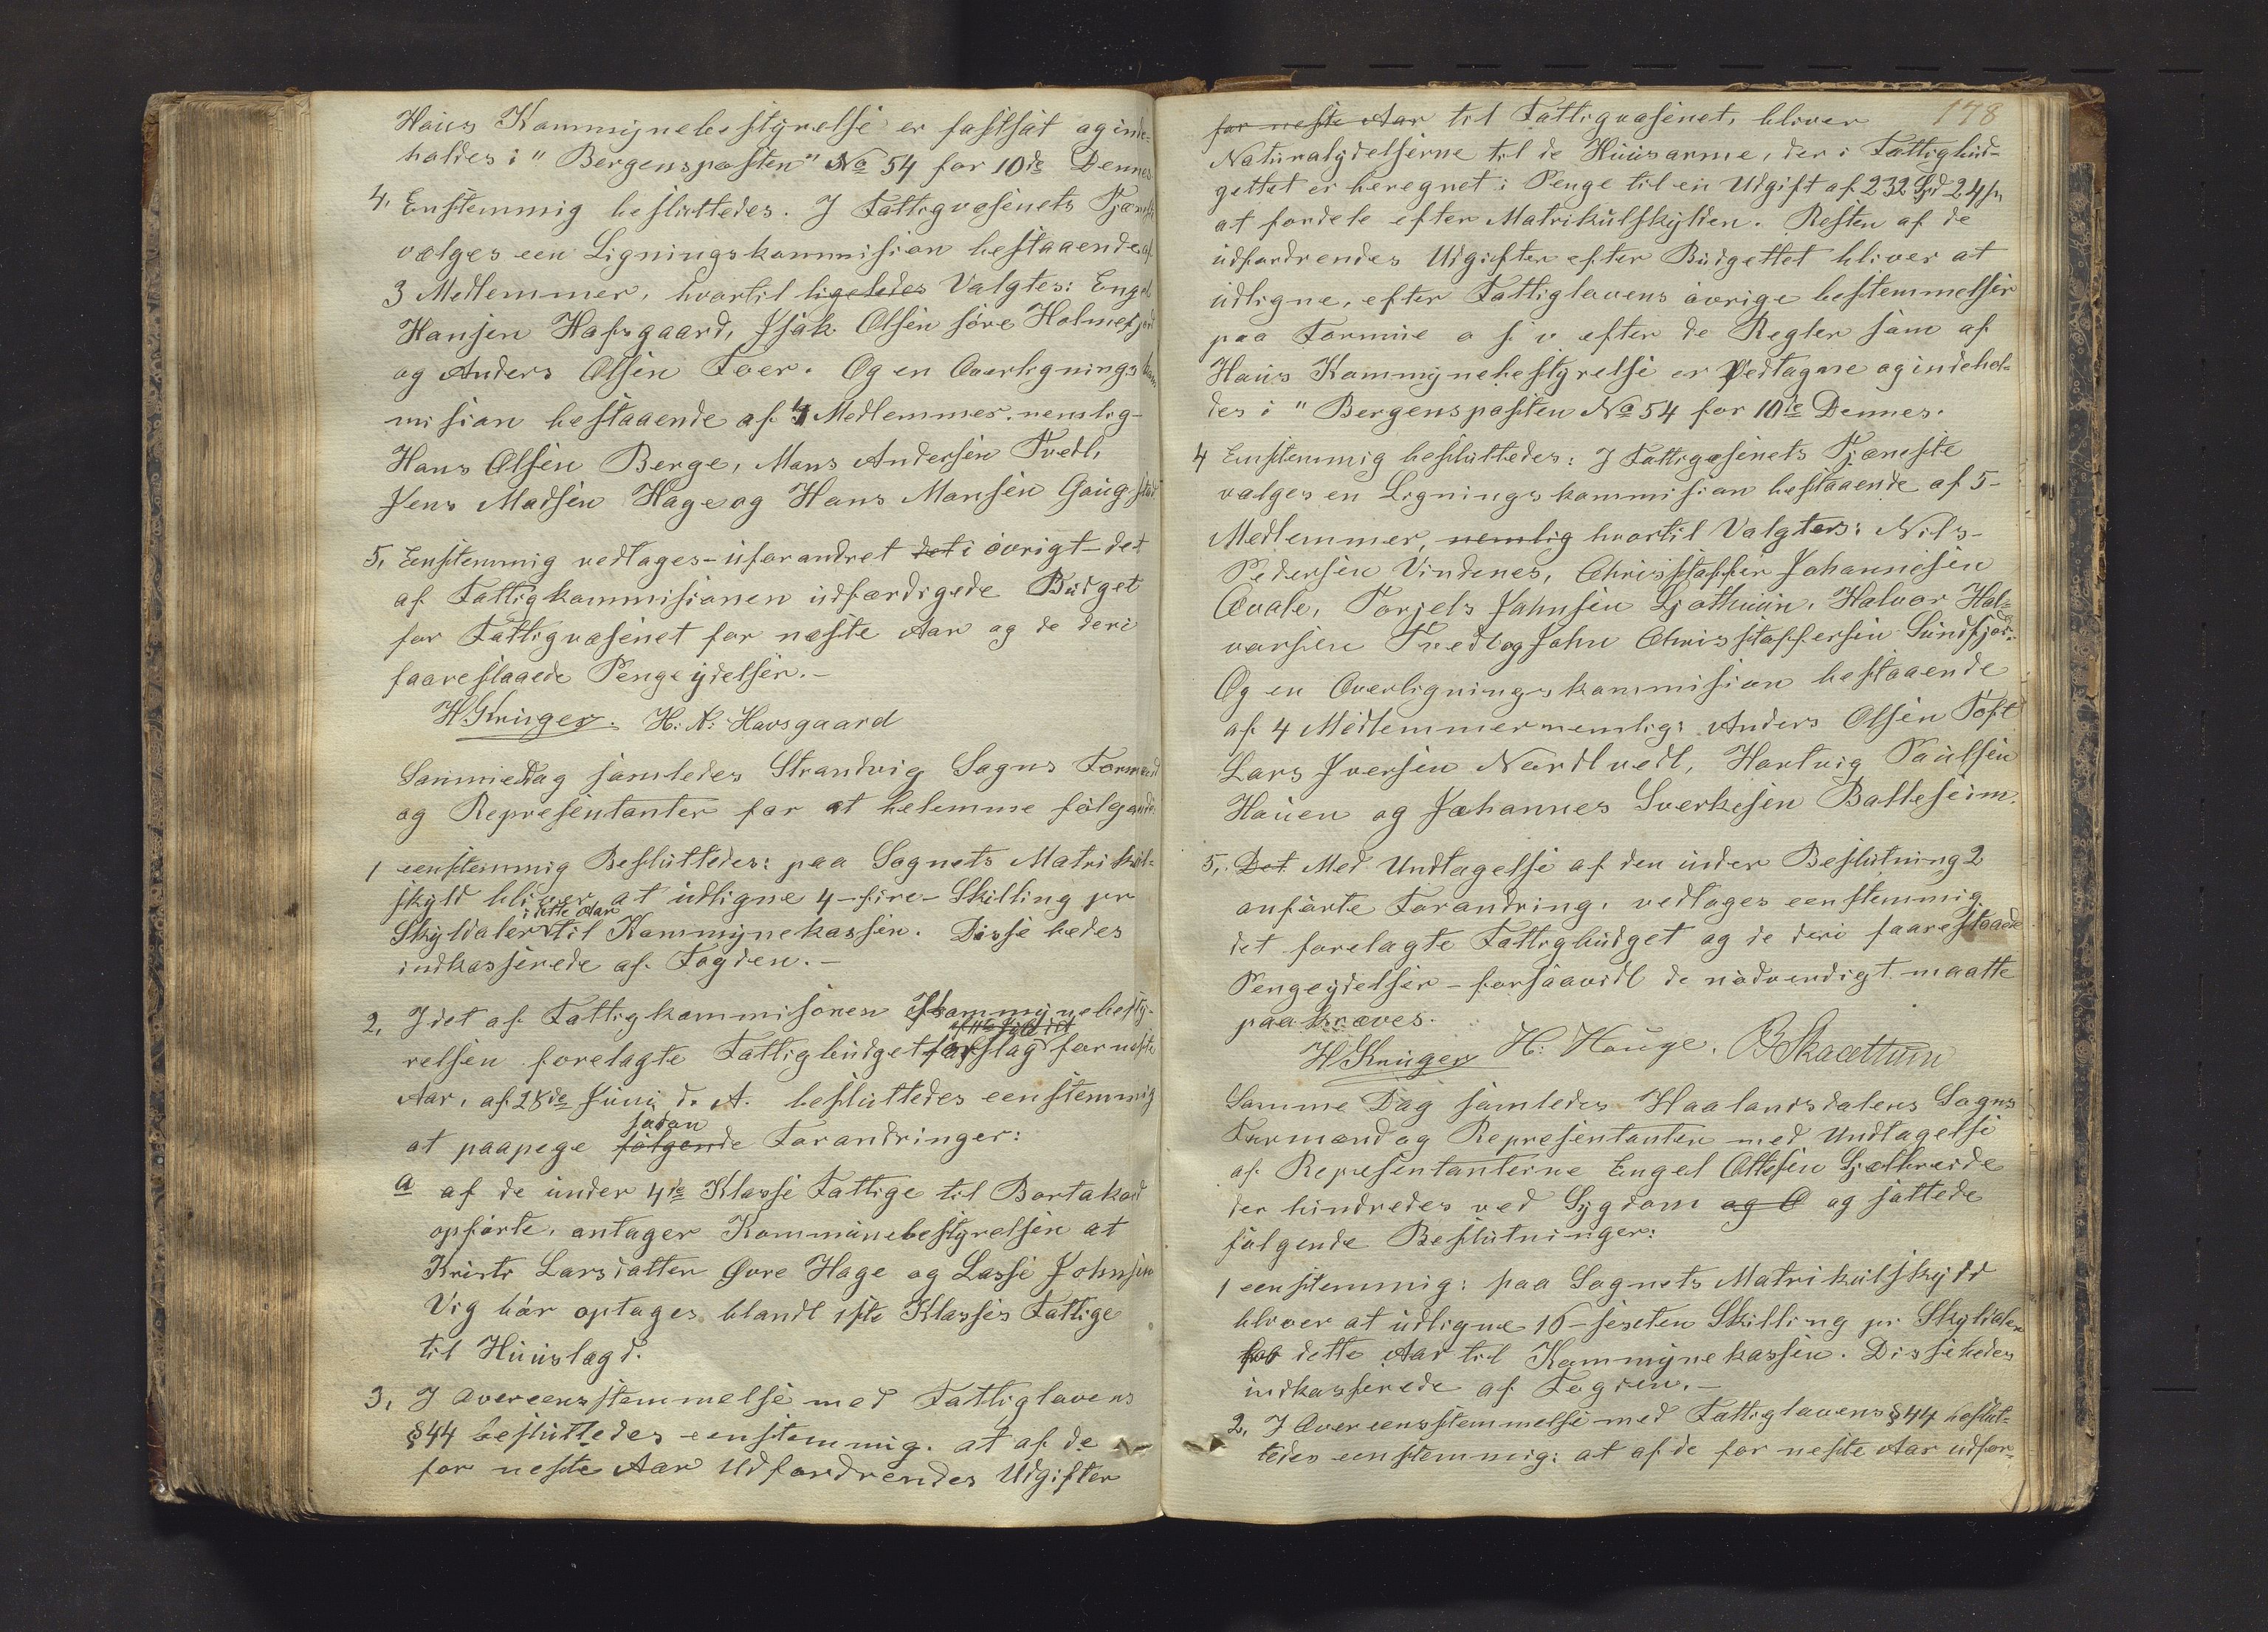 Haus Kommynebestyrelse er fastsat og inde-
holdes i "Bergensposten" No 54 for 10de Dennes
4, Enstemmig besluttedes. I Fattigvæsenets Tjæneste
vælges een Ligningskommission bestaaende af
3 Medlemmer, hvortil ligeledes Valgtes: Engel
Hansen Hafsgaard, Isak Olsen søre Holmefjord
og Anders Olsen Toer. Og en Overlignings kom
mission bestaaende af 4 Medlemmer. nemlig-
Hans Olsen Berge, Mons Andersen Tvedt,
Jens Madsen Hage og Hans Monsen Gaugstad
5, Eenstemmig vedtages - uforandret det i øvrigt - det
af Fattigkommissionen udfærdigede Budget
for Fattigvæsenet for næste Aar og de deri
foareslaaede Pengeydelser.-
H Krüger. H: N: Havsgaard
Samme Dag samledes Strandvig Sogns Formænd
og Representanter for at bestemme følgende:
1 eenstemmig Besluttedes: paa Sognets Matrikul-
skyld bliver at udligne 4 - fire - Skilling pr
i dette Aar
Skyldaler til Kommynekassen. Disse bedes
indkasserede af Fogden.-
2, I det af Fattigkommisionen Kommynebesty-
relsen forelagte Fattigbudget forslag for neste
Aar, af 28de Juni d. A. besluttedes eenstemmig
saadan
at paapege følgende Forandringer:
a af de under 4de Klasse Fattige til Bortakord
opførte, antager Kommunebestyrelsen at
Kristi Larsdatter Øvre Hage og Lasse Johnsen
Vig bør optages blandt 1ste Klasses Fattige
til Huuslægd.
3, I Overeensstemmelse med Fattiglovens
§44 besluttedes eenstemmig. at af de
for neste Aar Udfordrendes Udgifter
178
for neste Aar til Fattigvæsenet, bliver
Naturalydelserne til de Huusarme, der i Fattigbud-
gettet er beregnet i Penge til en Udgift af 232 Spd 24 s,
at fordele efter Matrikulskylden. Resten af de
udfordrendes Udgifter efter Budgettet bliver at
udligne, efter Fattiglovens øvrige bestemmelser
paa Formue o s v efter de Regler som af
Haus Kommynebestyrelse er Vedtagne og indehol-
des i "Bergensposten No 54 for 10de Dennes.
4 Eenstemmig besluttedes: I Fattigvæsenets Tjæneste
valges en Ligningskommission bestaaende af 5-
Medlemmer, nemlig hvortil Valgtes: Nils-
Pedersen Vindenes, Christaffer Johannesen
Qvale, Torjels Johnsen Ljothuun, Halvor Hal-
vorsen Tvedt og John Christoffersen Sundfjor.
Og en Overligningskommission bestaaende
af 4 Medlemmer nemlig: Anders Olsen Toft
Lars Iversen Nordtvedt, Hartvig Paulsen
Hauen og Johannes Sverkesen Balteseim.
5, Det Med Undtagelse af den under Beslutning 2
anførte Forandring, vedtages eenstemmig
det forelagte Fattigbudget og de deri foareslaaede
Pengeydelser - forsaavidt de nødvendigt maatte
paakræves.
H Krüger H: Hauge. B Skaathun
Samme Dag samledes Haalandsdalens Sogns
Formænd og Representanter med Undtagelse
af Representanterne Engel Ottesen Gjethreide
der hindredes ved Sygdom og O og fattede
følgende Beslutninger:
1 eenstemmig: paa Sognets Matrikulskyld
bliver at udligne 16 - sexten Skilling pr. Skyldaler
for dette Aar til Kommynekassen. Disse bedes
indkasserede af Fogden.-
2, I Overeensstemmelse med Fattiglovens §44 beslut-
tedes eenstemmig: at af de for neste Aar udfor-